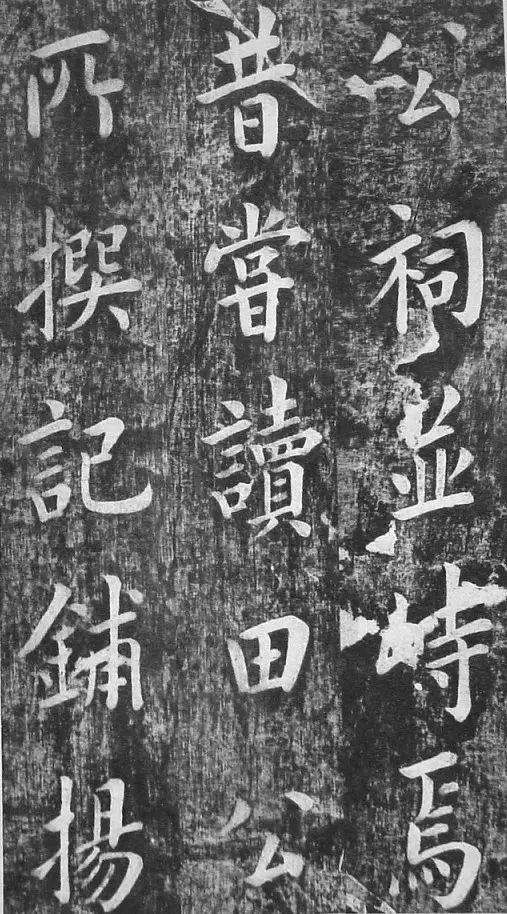 公祠並峙焉
昔嘗讀田公
所撰記鋪揚